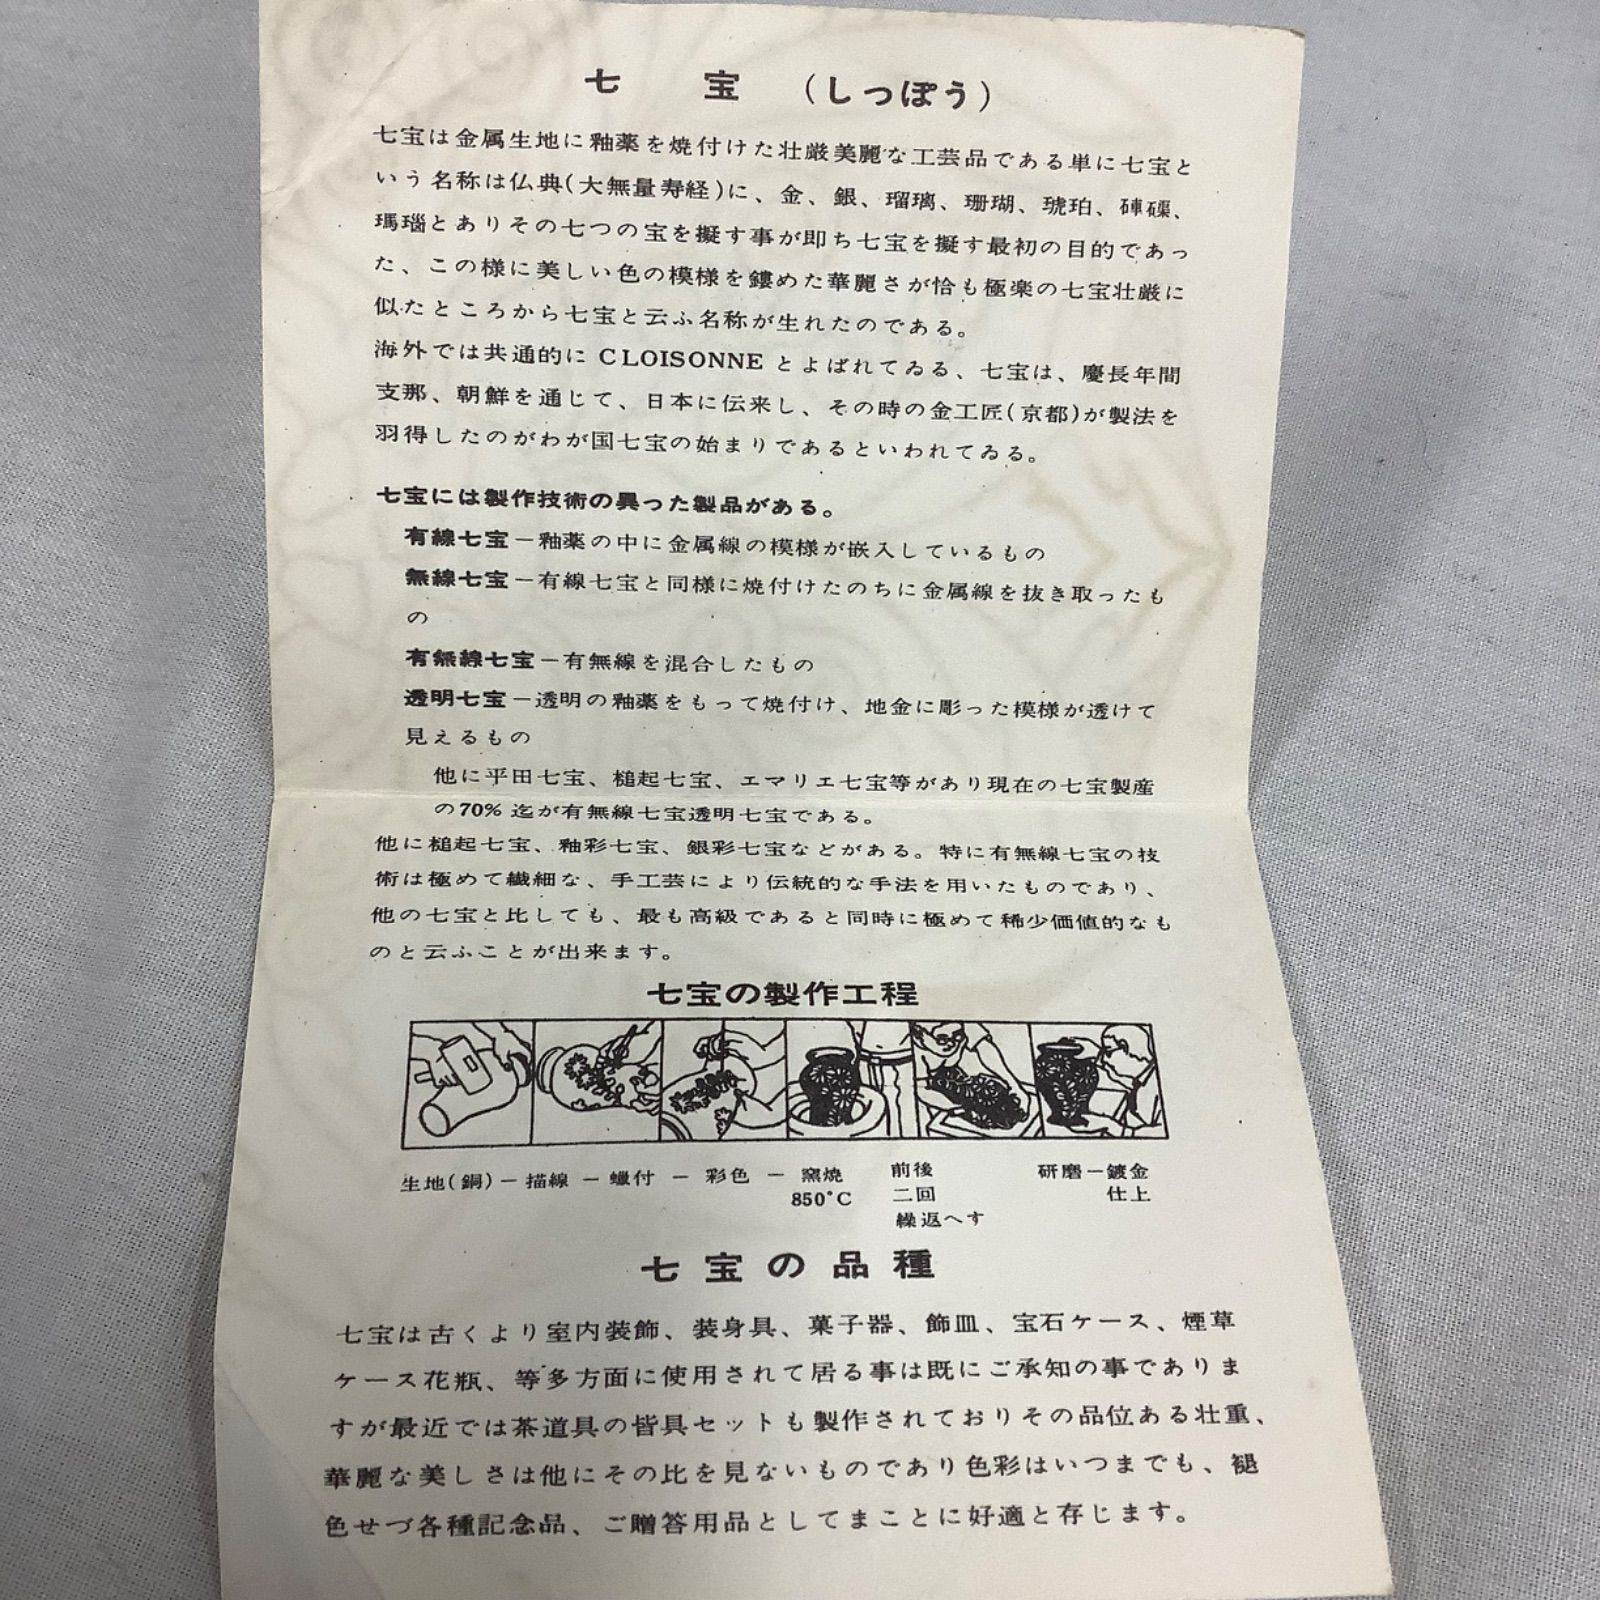 七宝（しっぽう）
七宝は金属生地に釉薬を焼付けた壮厳美麗な工芸品である単に七宝と
いう名称は仏典(大無量寿経)に、金、銀、瑠璃、珊瑚、琥珀、硨磲、
瑪瑙とありその七つの宝を擬す事が即ち七宝を擬す最初の目的であっ
た、この様に美しい色の模様を鏤めた華麗さが恰も極楽の七宝壮厳に
似たところから七宝と云ふ名称が生れたのである。
海外では共通的に CLOISONNE とよばれてゐる、七宝は、慶長年間
支那、朝鮮を通じて、日本に伝来し、その時の金工匠(京都)が製法を
羽得したのがわが国七宝の始まりであるといわれてゐる。
七宝には製作技術の異った製品がある。
有線七宝－釉薬の中に金属線の模様が嵌入しているもの
無線七宝－有線七宝と同様に焼付けたのちに金属線を抜き取ったも
の
有無線七宝－有無線を混合したもの
透明七宝－透明の釉薬をもって焼付け、地金に彫った模様が透けて
見えるもの
他に平田七宝、槌起七宝、エマリエ七宝等があり現在の七宝製産
の70% 迄が有無線七宝透明七宝である。
他に槌起七宝、釉彩七宝、銀彩七宝などがある。特に有無線七宝の技
術は極めて繊細な、手工芸により伝統的な手法を用いたものであり、
他の七宝と比しても、最も高級であると同時に極めて稀少価値的なも
のと云ふことが出来ます。
七宝の製作工程
生地(銅)－描線－蠟付－彩色－窯焼 前後 研磨－鍍金
850°C 二回 仕上
繰返へす
七宝の品種
七宝は古くより室内装飾、装身具、菓子器、飾皿、宝石ケース、煙草
ケース花瓶、等多方面に使用されて居る事は既にご承知の事でありま
すが最近では茶道具の皆具セットも製作されておりその品位ある壮重、
華麗な美しさは他にその比を見ないものであり色彩はいつまでも、褪
色せづ各種記念品、ご贈答用品としてまことに好適と存じます。